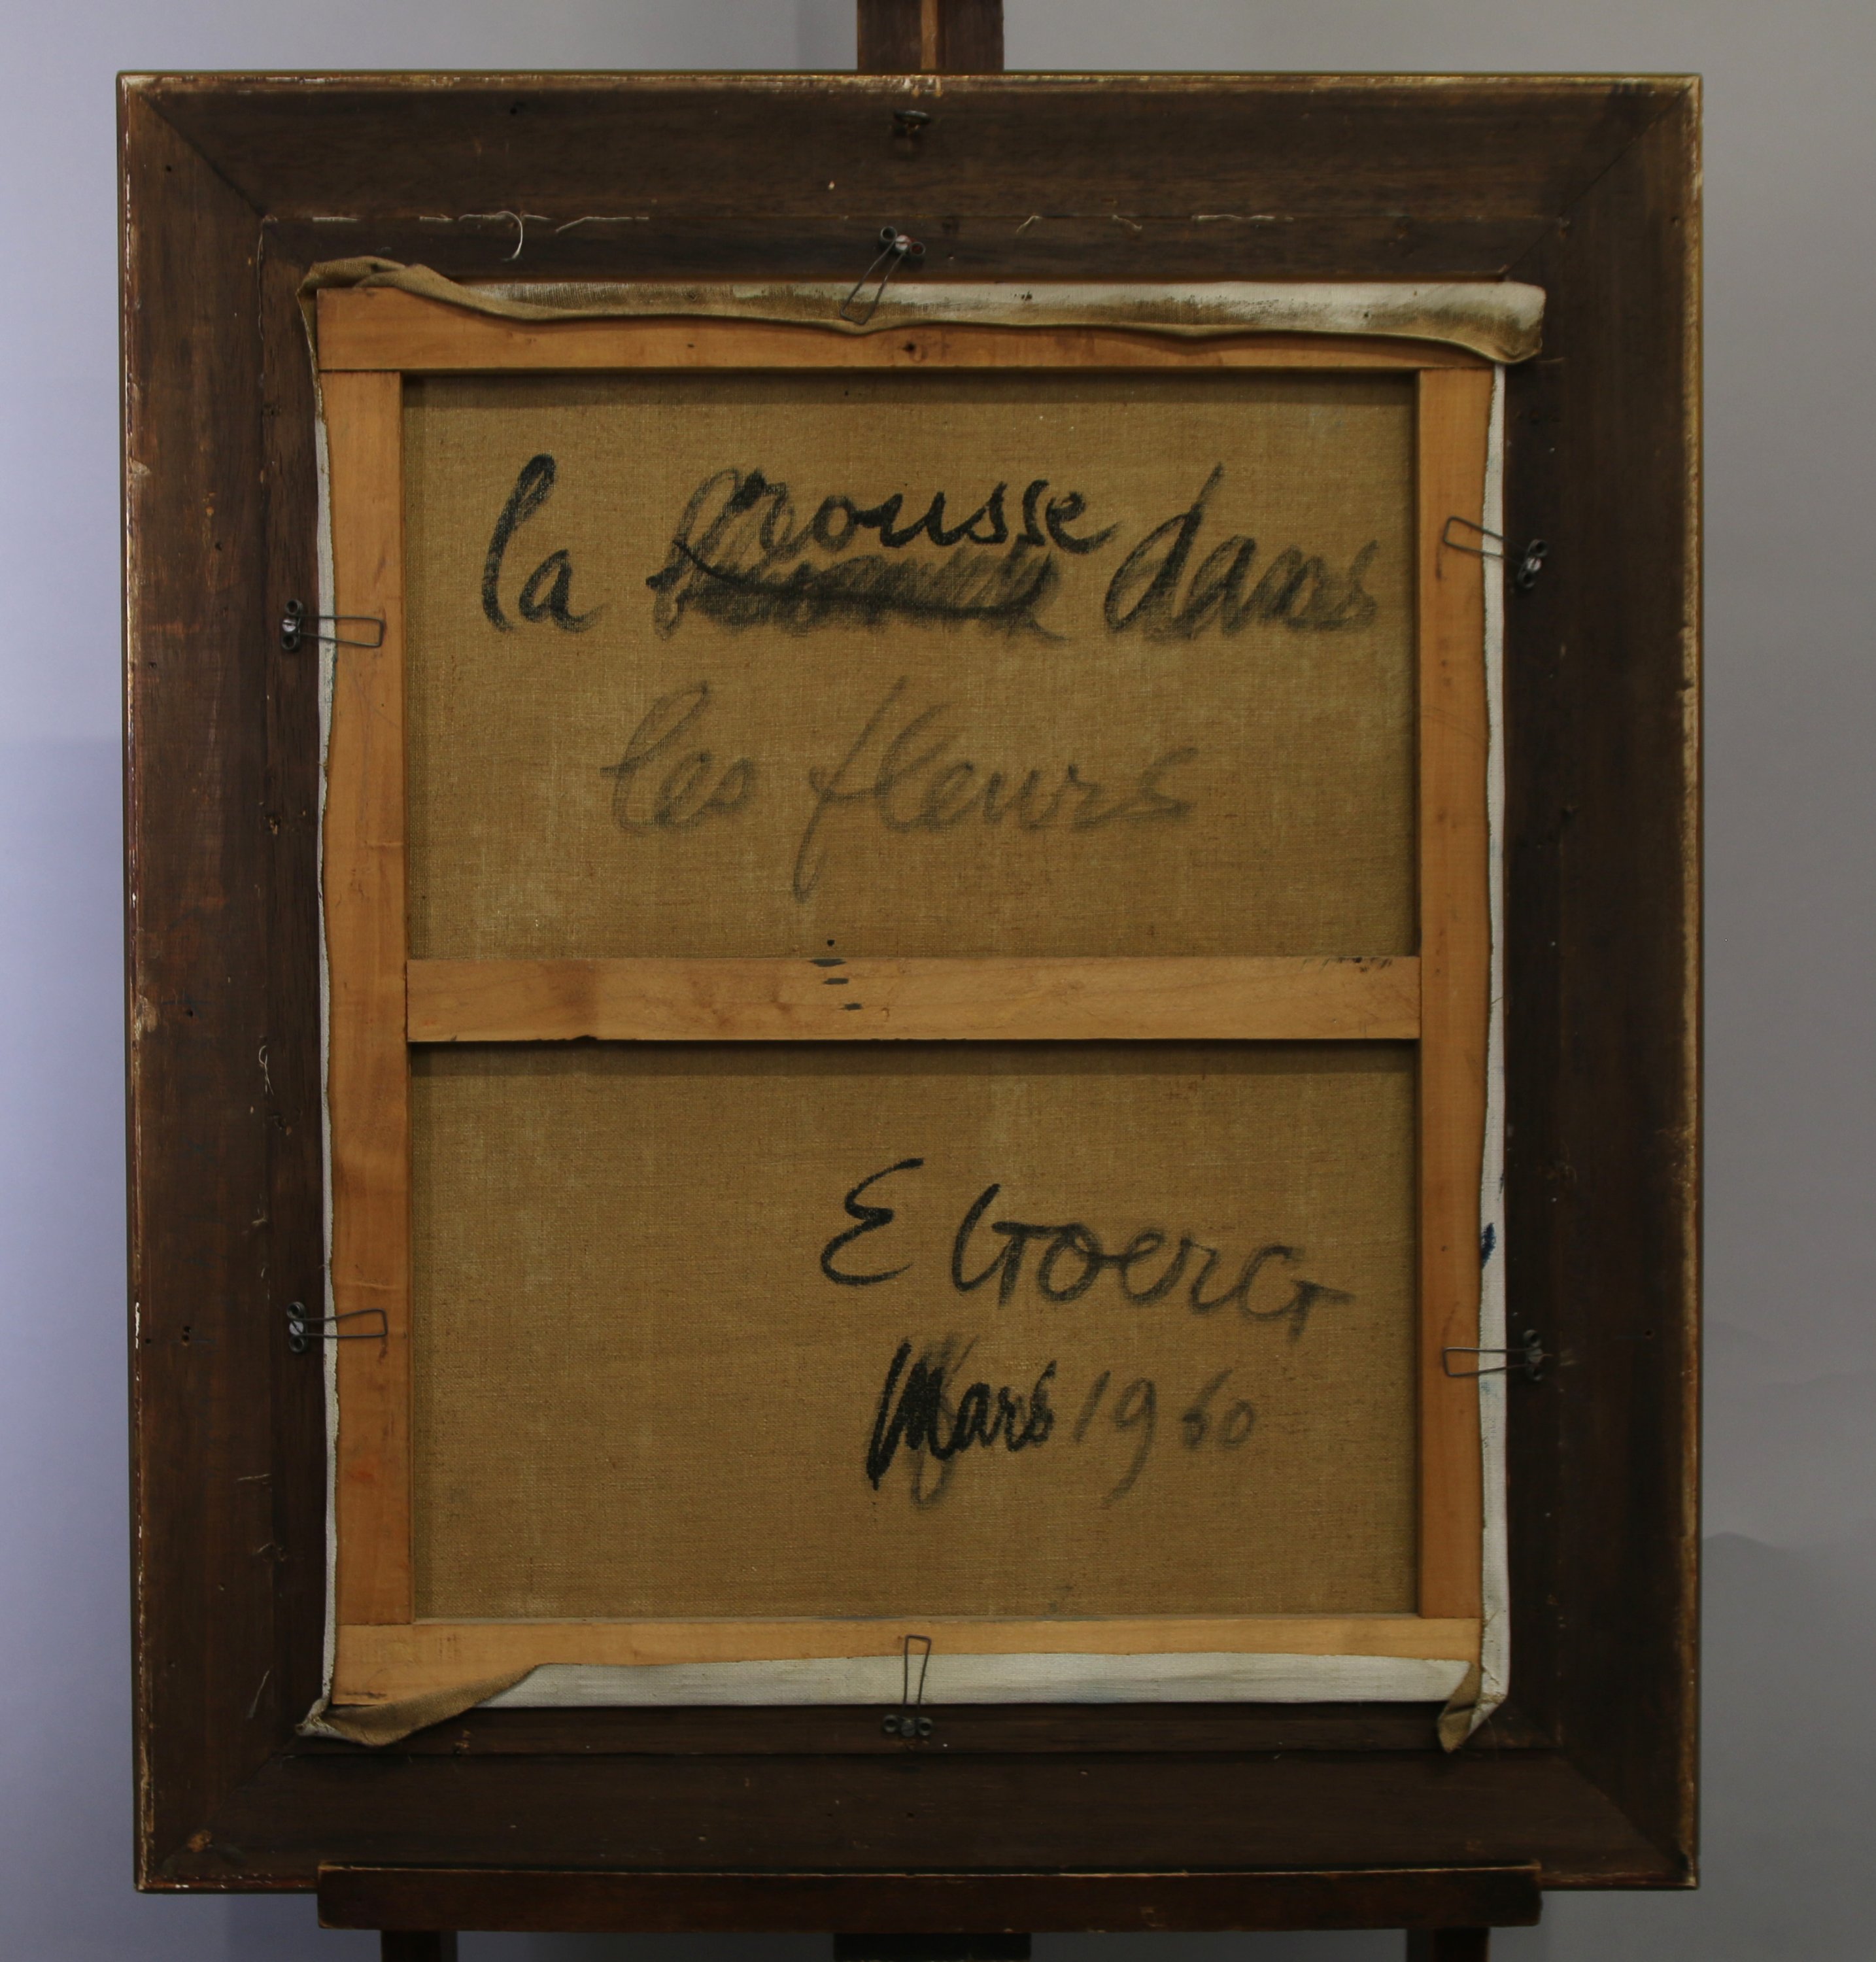 la rousse dans
les fleurs
E GoerG
Mars 1960